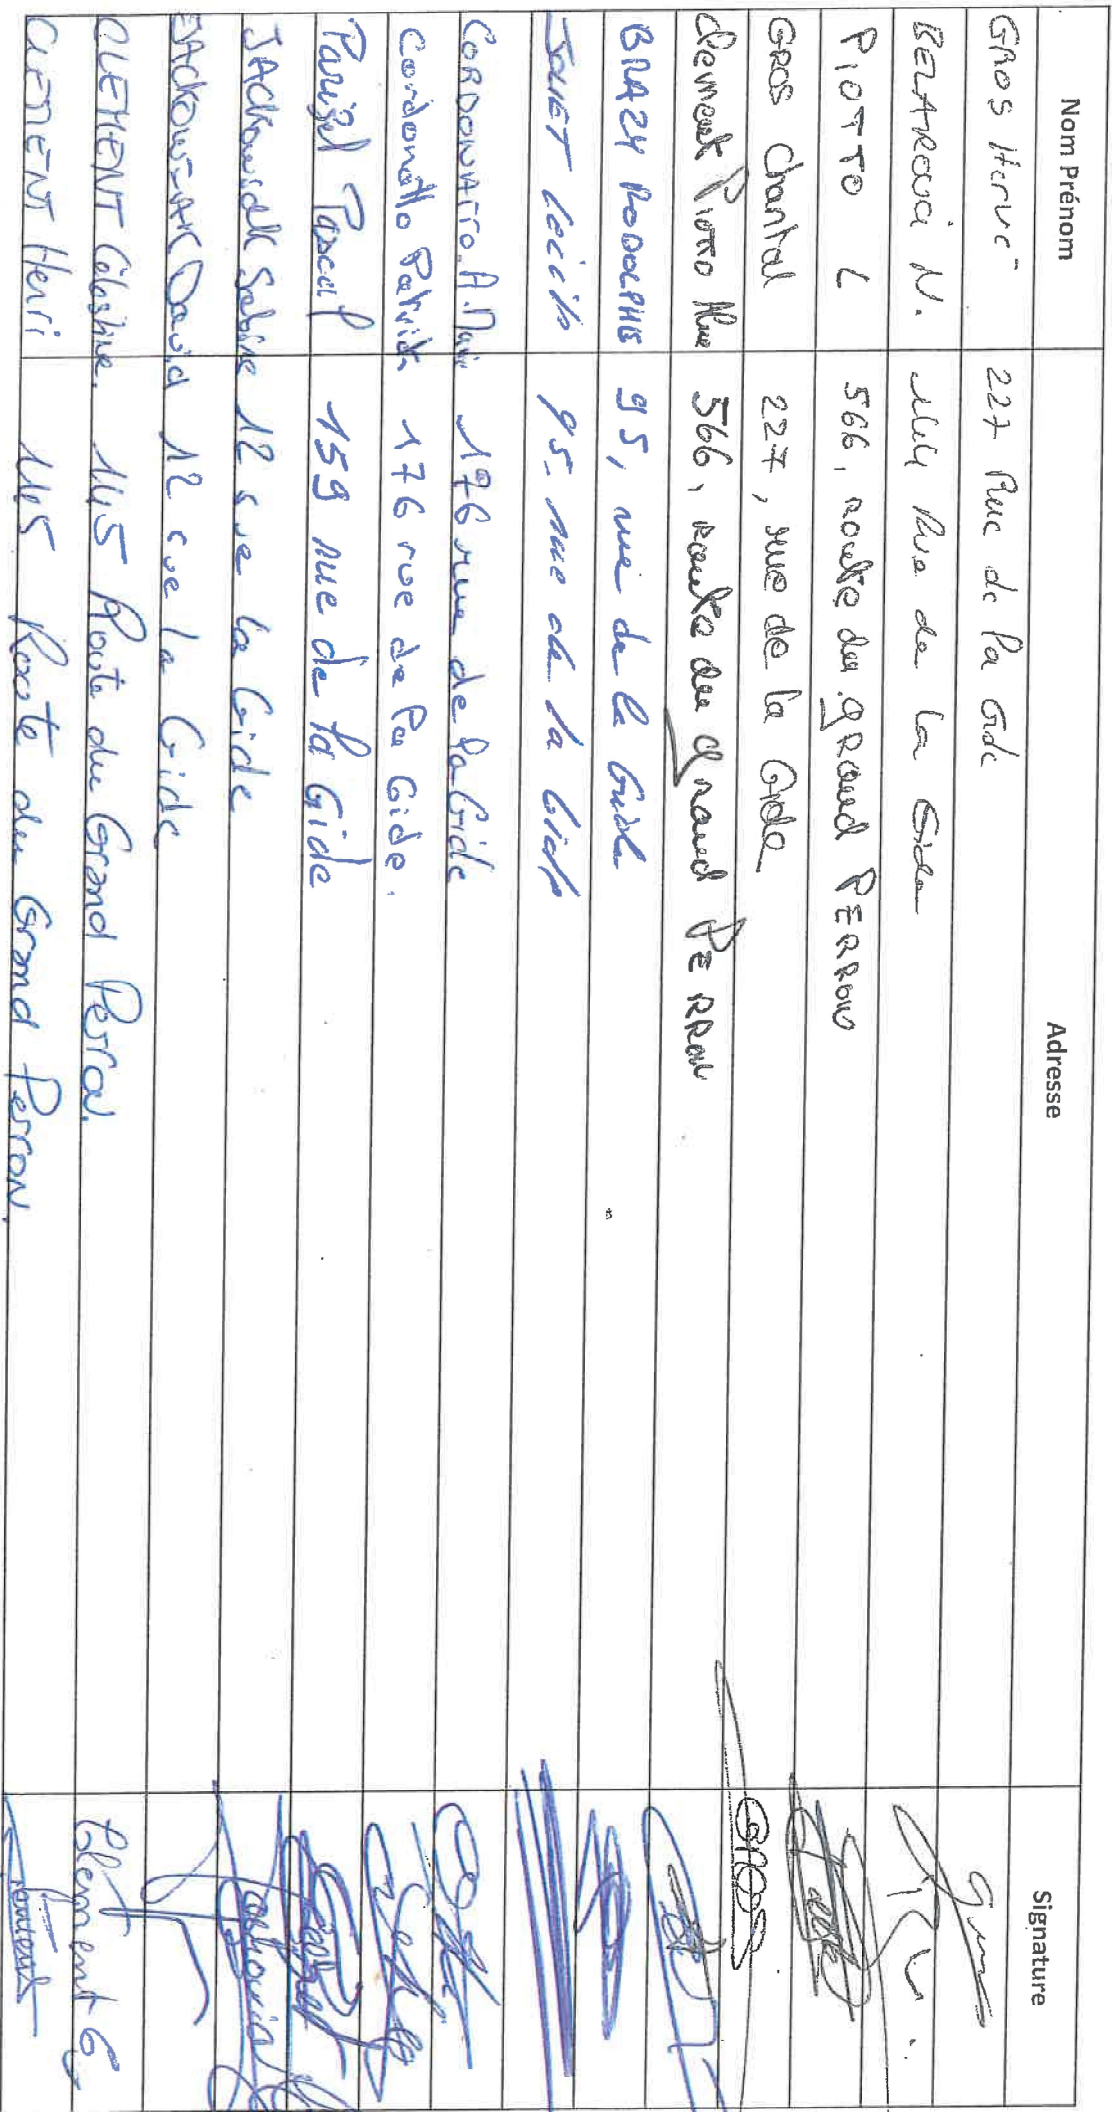 Nom Prénom Adresse Signature
GROS Hervé 227 Rue de la Gide
BELAROUCI N. Rue de la Gide
PIOTTO L 566, route du grand PERRON
GROS Chantal 227, rue de la Gide
Clement Piotto 566, route du grand PERRON
BRAZY RODOLPHE 95, rue de la Gide
JOUET Cécile 95 rue de la Gide
CORDONATTO A. Marie 176 rue de la Gide
Cordonatto Patrick 176 rue de la Gide.
Pascal 159 rue de la Gide
JACKOWIAK Sabine 12 rue la Gide
JACKOWIAK David 12 rue la Gide
CLEMENT Célestine. 145 Route du Grand Perron.
Clement G
CLEMENT Henri 145 Route du Grand Perron.